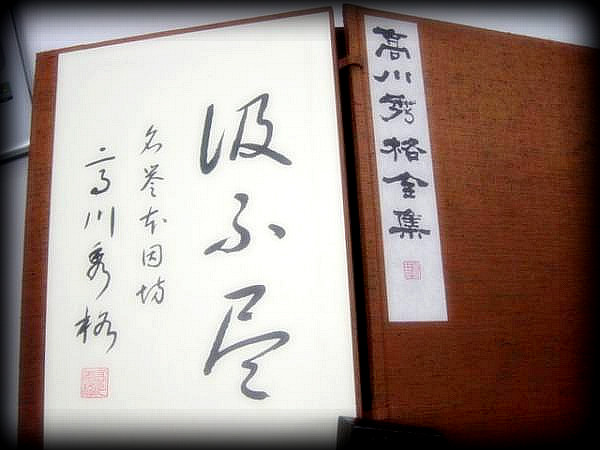 高川秀格全集
汲不尽
名誉本因坊
高川秀格